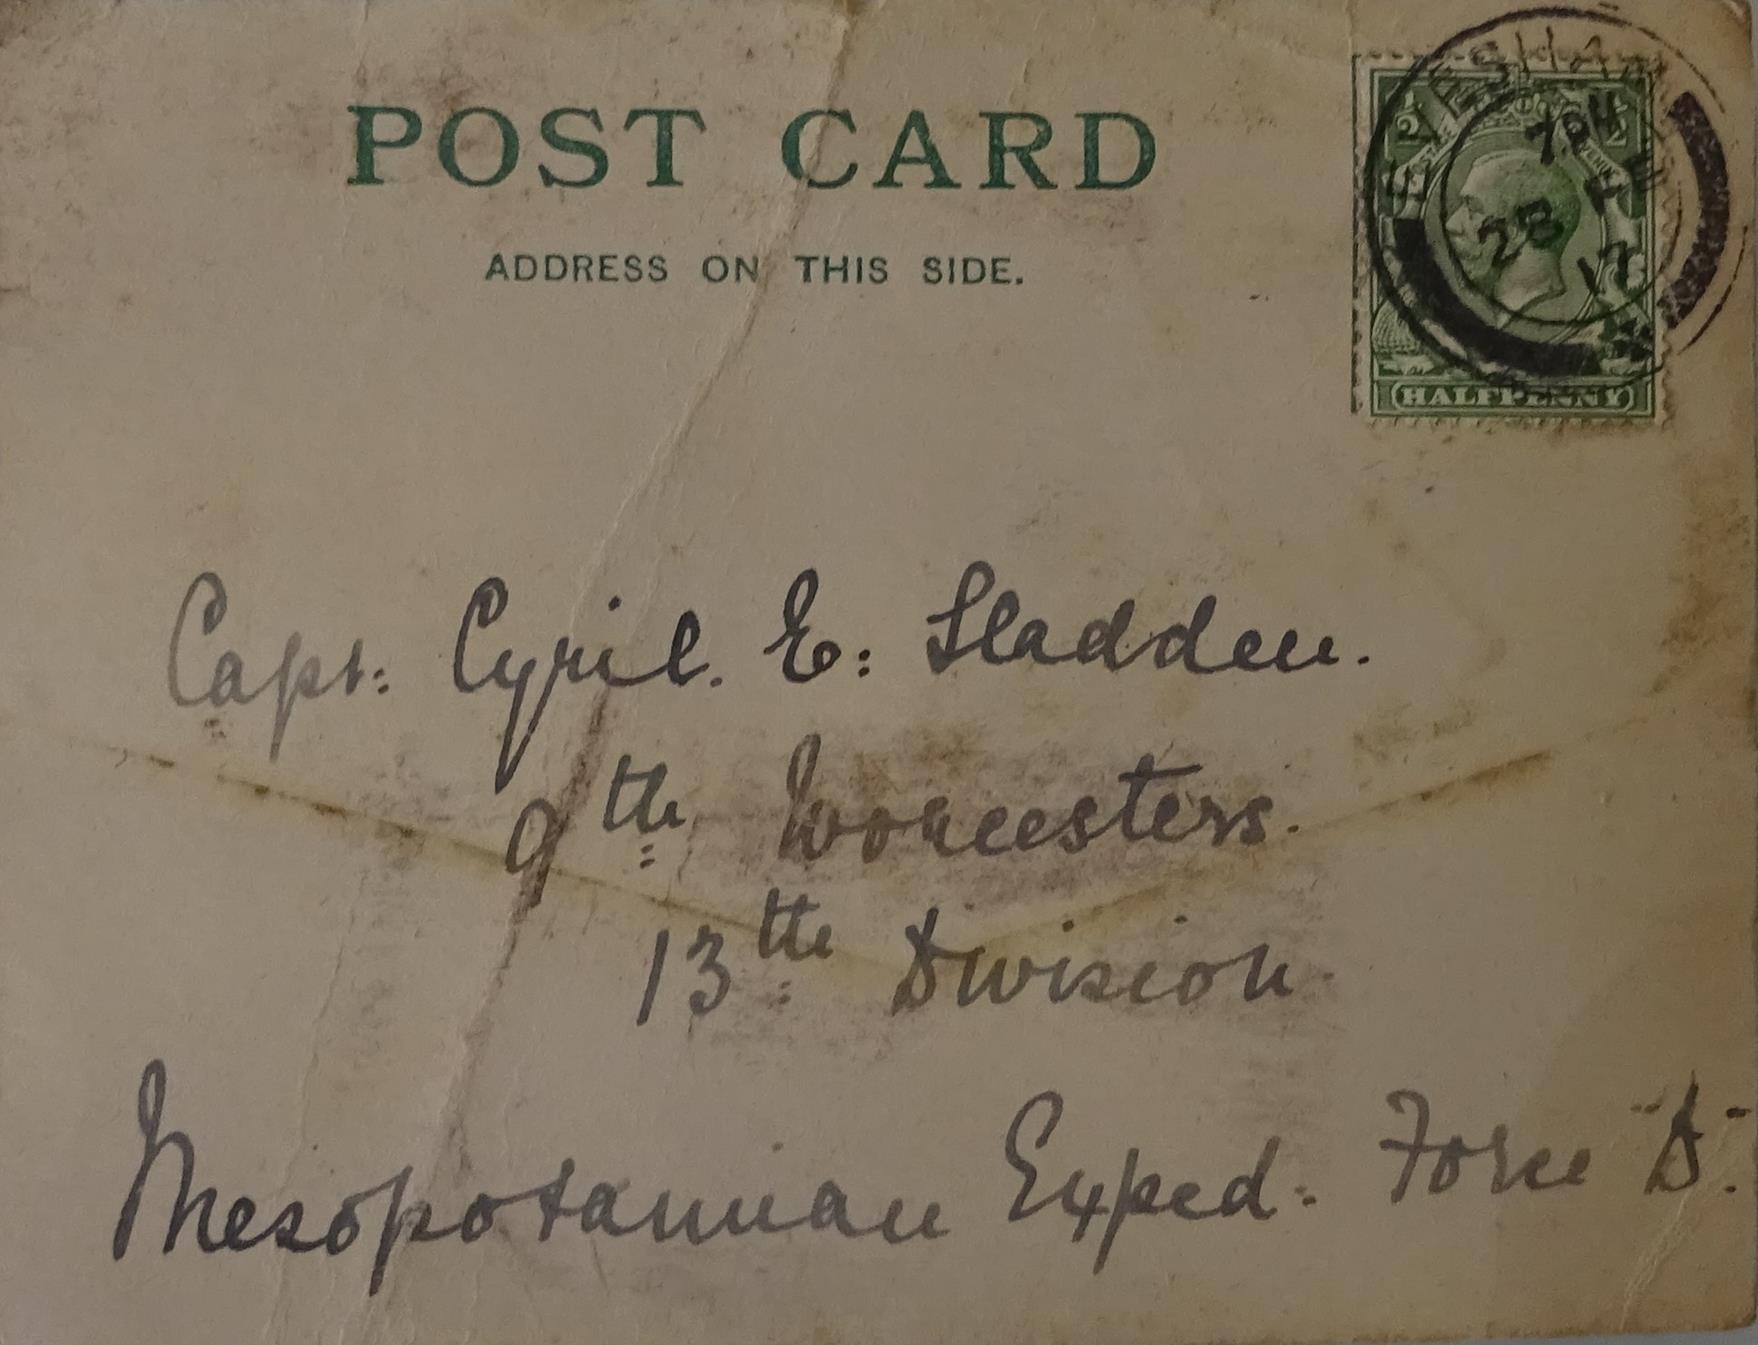 POST CARD
ADDRESS ON THIS SIDE.
EVESHAM
7 PM
23 FE
17
HALFPENNY
Capt: Cyril. E: Sladden.
9th Worcesters.
13th Division.
Mesopotamian Exped: Force "D".